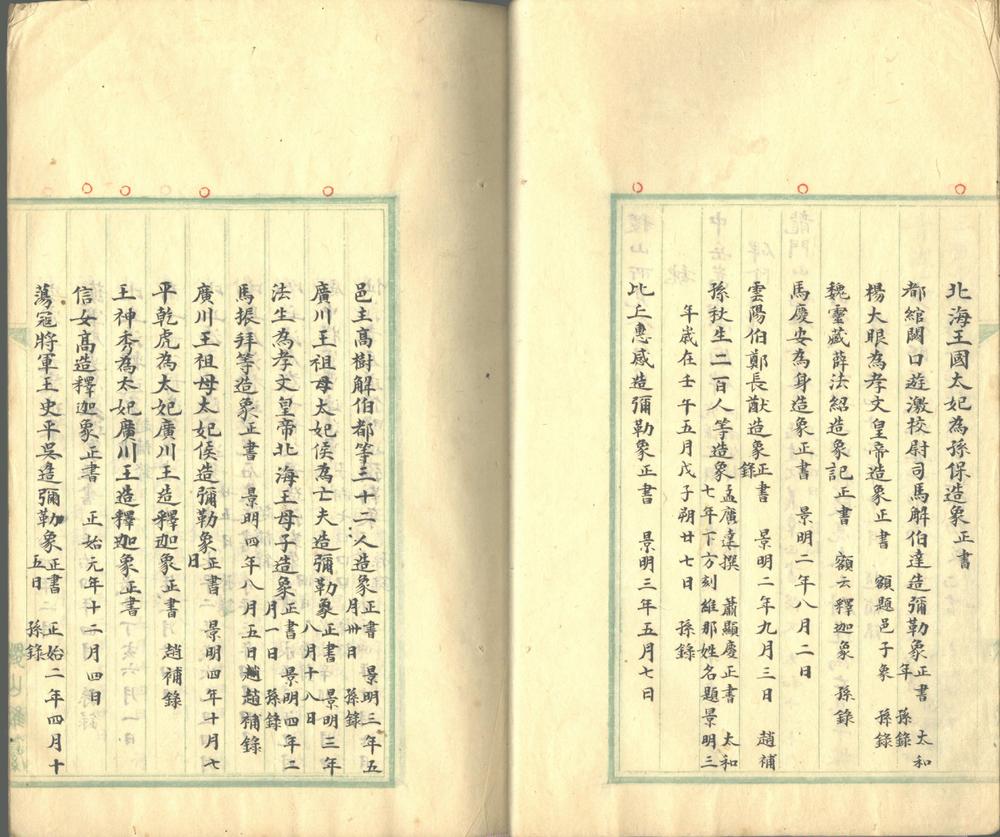 北海王國太妃為孫保造象正書
都綰闕口遊激校尉司馬解伯達造彌勒象正書 太和
年 孫錄
楊大眼為孝文皇帝造象正書 額題邑子象 孫錄
魏靈藏薛法紹造象記正書 額云釋迦象 孫錄
馬慶安為身造象正書 景明二年八月二日
雲陽伯鄭長猷造象正書 景明二年九月三日 趙補
錄
孫秋生二百人等造象孟廣達撰 蕭顯慶正書 太和
七年下方刻維那姓名題景明三
年歲在壬午五月戊子朔廿七日 孫錄
比丘惠感造彌勒象正書 景明三年五月七日
邑主高樹解伯都等三十二人造象正書 景明三年五
月卅日 孫錄
廣川王祖母太妃侯為亡夫造彌勒象正書 景明三年
八月十八日
法生為孝文皇帝北海王母子造象正書 景明四年二
月一日 孫錄
馬振拜等造象正書 景明四年八月五日趙補錄
廣川王祖母太妃侯造彌勒象正書 景明四年十月七
日
平乾虎為太妃廣川王造釋迦象正書 趙補錄
王神秀為太妃廣川王造釋迦象正書
信女高造釋迦象正書 正始元年十二月四日
蕩寇將軍王史平吳造彌勒象正書 正始二年四月十
五日 孫錄